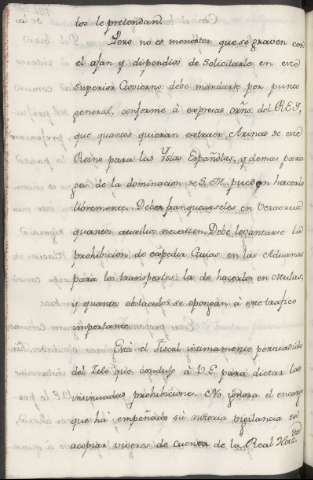 tos le pretendan.
Pero no es menester que se graven con
el afan y dispendios de solicitarlo en este
Superior Govierno: debe mandarse por punto
general, conforme á expresas orns. del REY,
que quantos quieran extraer Arinas de este
Reino para las Yslas Españolas, y demas para
ges de la dominacion de S. M. puedan hacerlo
libremente. Deben franqueárseles en Veracruz
quantos auxilios necesiten. Debe levantarse la
prohibicion de expedir Guias en las Aduanas
para los transportes: la de hacerlos en Mulas,
y quantos obstaculos se opongan á este trafico
importante.
Está el Fiscal intimamente persuadido
del Zelo que condujo á V. E. para dictar las
insinuadas prohibiciones. No ignora el
que há empeñado su notoria vigilancia en
acopiar viveres de cuenta de la Real Hazda.